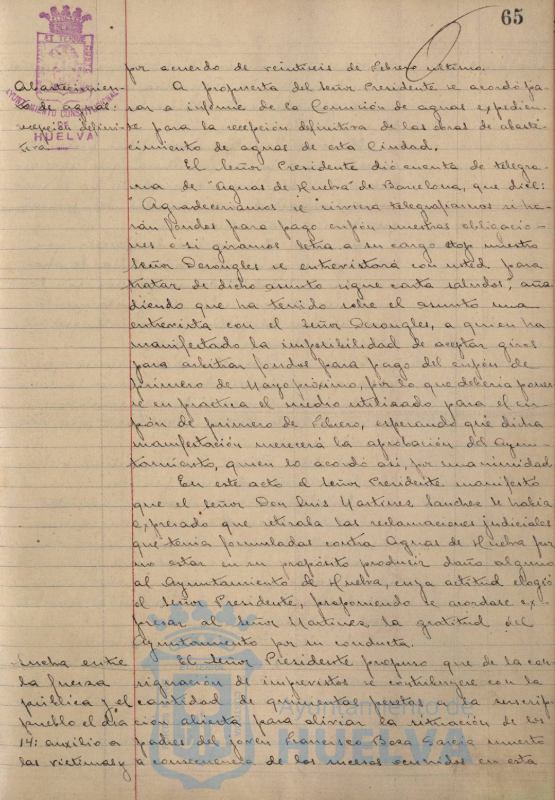 65
AYUNTAMIENTO CONSTITUCIONAL
DE
HUELVA
por acuerdo de veintiseis de Febrero último.
Abastecimien-
to de aguas:
recepción definiti-
tiva
A propuesta del Señor Presidente se acordó pa-
sar a informe de la Comisión de aguas expedien-
te para la recepción definitiva de las obras de abaste-
cimiento de aguas de esta Ciudad.
El Señor Presidente dió cuenta de telegra-
ma de "Aguas de Huelva" de Barcelona, que dice:
"Agradeceríamos se sirviera telegrafiarnos si ha-
rán fondos para pago cupón nuestras obligacio-
nes o si giramos letra a su cargo stop nuestro
Señor Desongles se entrevistará con usted para
tratar de dicho asunto sigue carta saludos", aña-
diendo que ha tenido sobre el asunto una
entrevista con el Señor Desongles, a quien ha
manifestado la imposibilidad de aceptar giros
para arbitrar fondos para pago del cupón de
primero de Mayo próximo, por lo que debería poner-
se en práctica el medio utilizado para el cu-
pón de primero de Febrero, esperando que dicha
manifestación merecerá la aprobación del Ayun-
tamiento, quien lo acordó así, por unanimidad
En este acto el Señor Presidente manifestó
que el señor Don Luis Martinez Sanchez le había
expresado que retiraba las reclamaciones judiciales
que tenía formuladas contra Aguas de Huelva por
no estar en su propósito producir daño alguno
al Ayuntamiento de Huelva, cuya actitud elogió
el Señor Presidente, proponiendo se acordase ex-
presar al Señor Martinez la gratitud del
Ayuntamiento por su conducta.
Lucha entre
la fuerza
pública y el
pueblo el dia
14: auxilio a
las victimas y
El Señor Presidente propuso que de la con-
signación de imprevistos se contribuyese con la
cantidad de quinientas pesetas a la suscrip-
ción abierta para aliviar la situación de los
padres del joven Francisco Boza Garcia muerto
a consecuencia de los sucesos ocurridos en esta
Ayuntamiento de
HUELVA